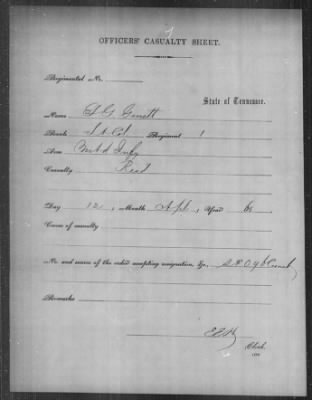 OFFICERS' CASUALTY SHEET.
Regimental No.
State of Tennessee.
Name L G Garrett
Rank Lt Col Regiment 1
Arm Mtd Infy
Casualty Resd
Day 12, Month Apl, Year 65
Cause of casualty
No. and source of the order accepting resignation, &c., S.O. 96
Remarks
Clerk.